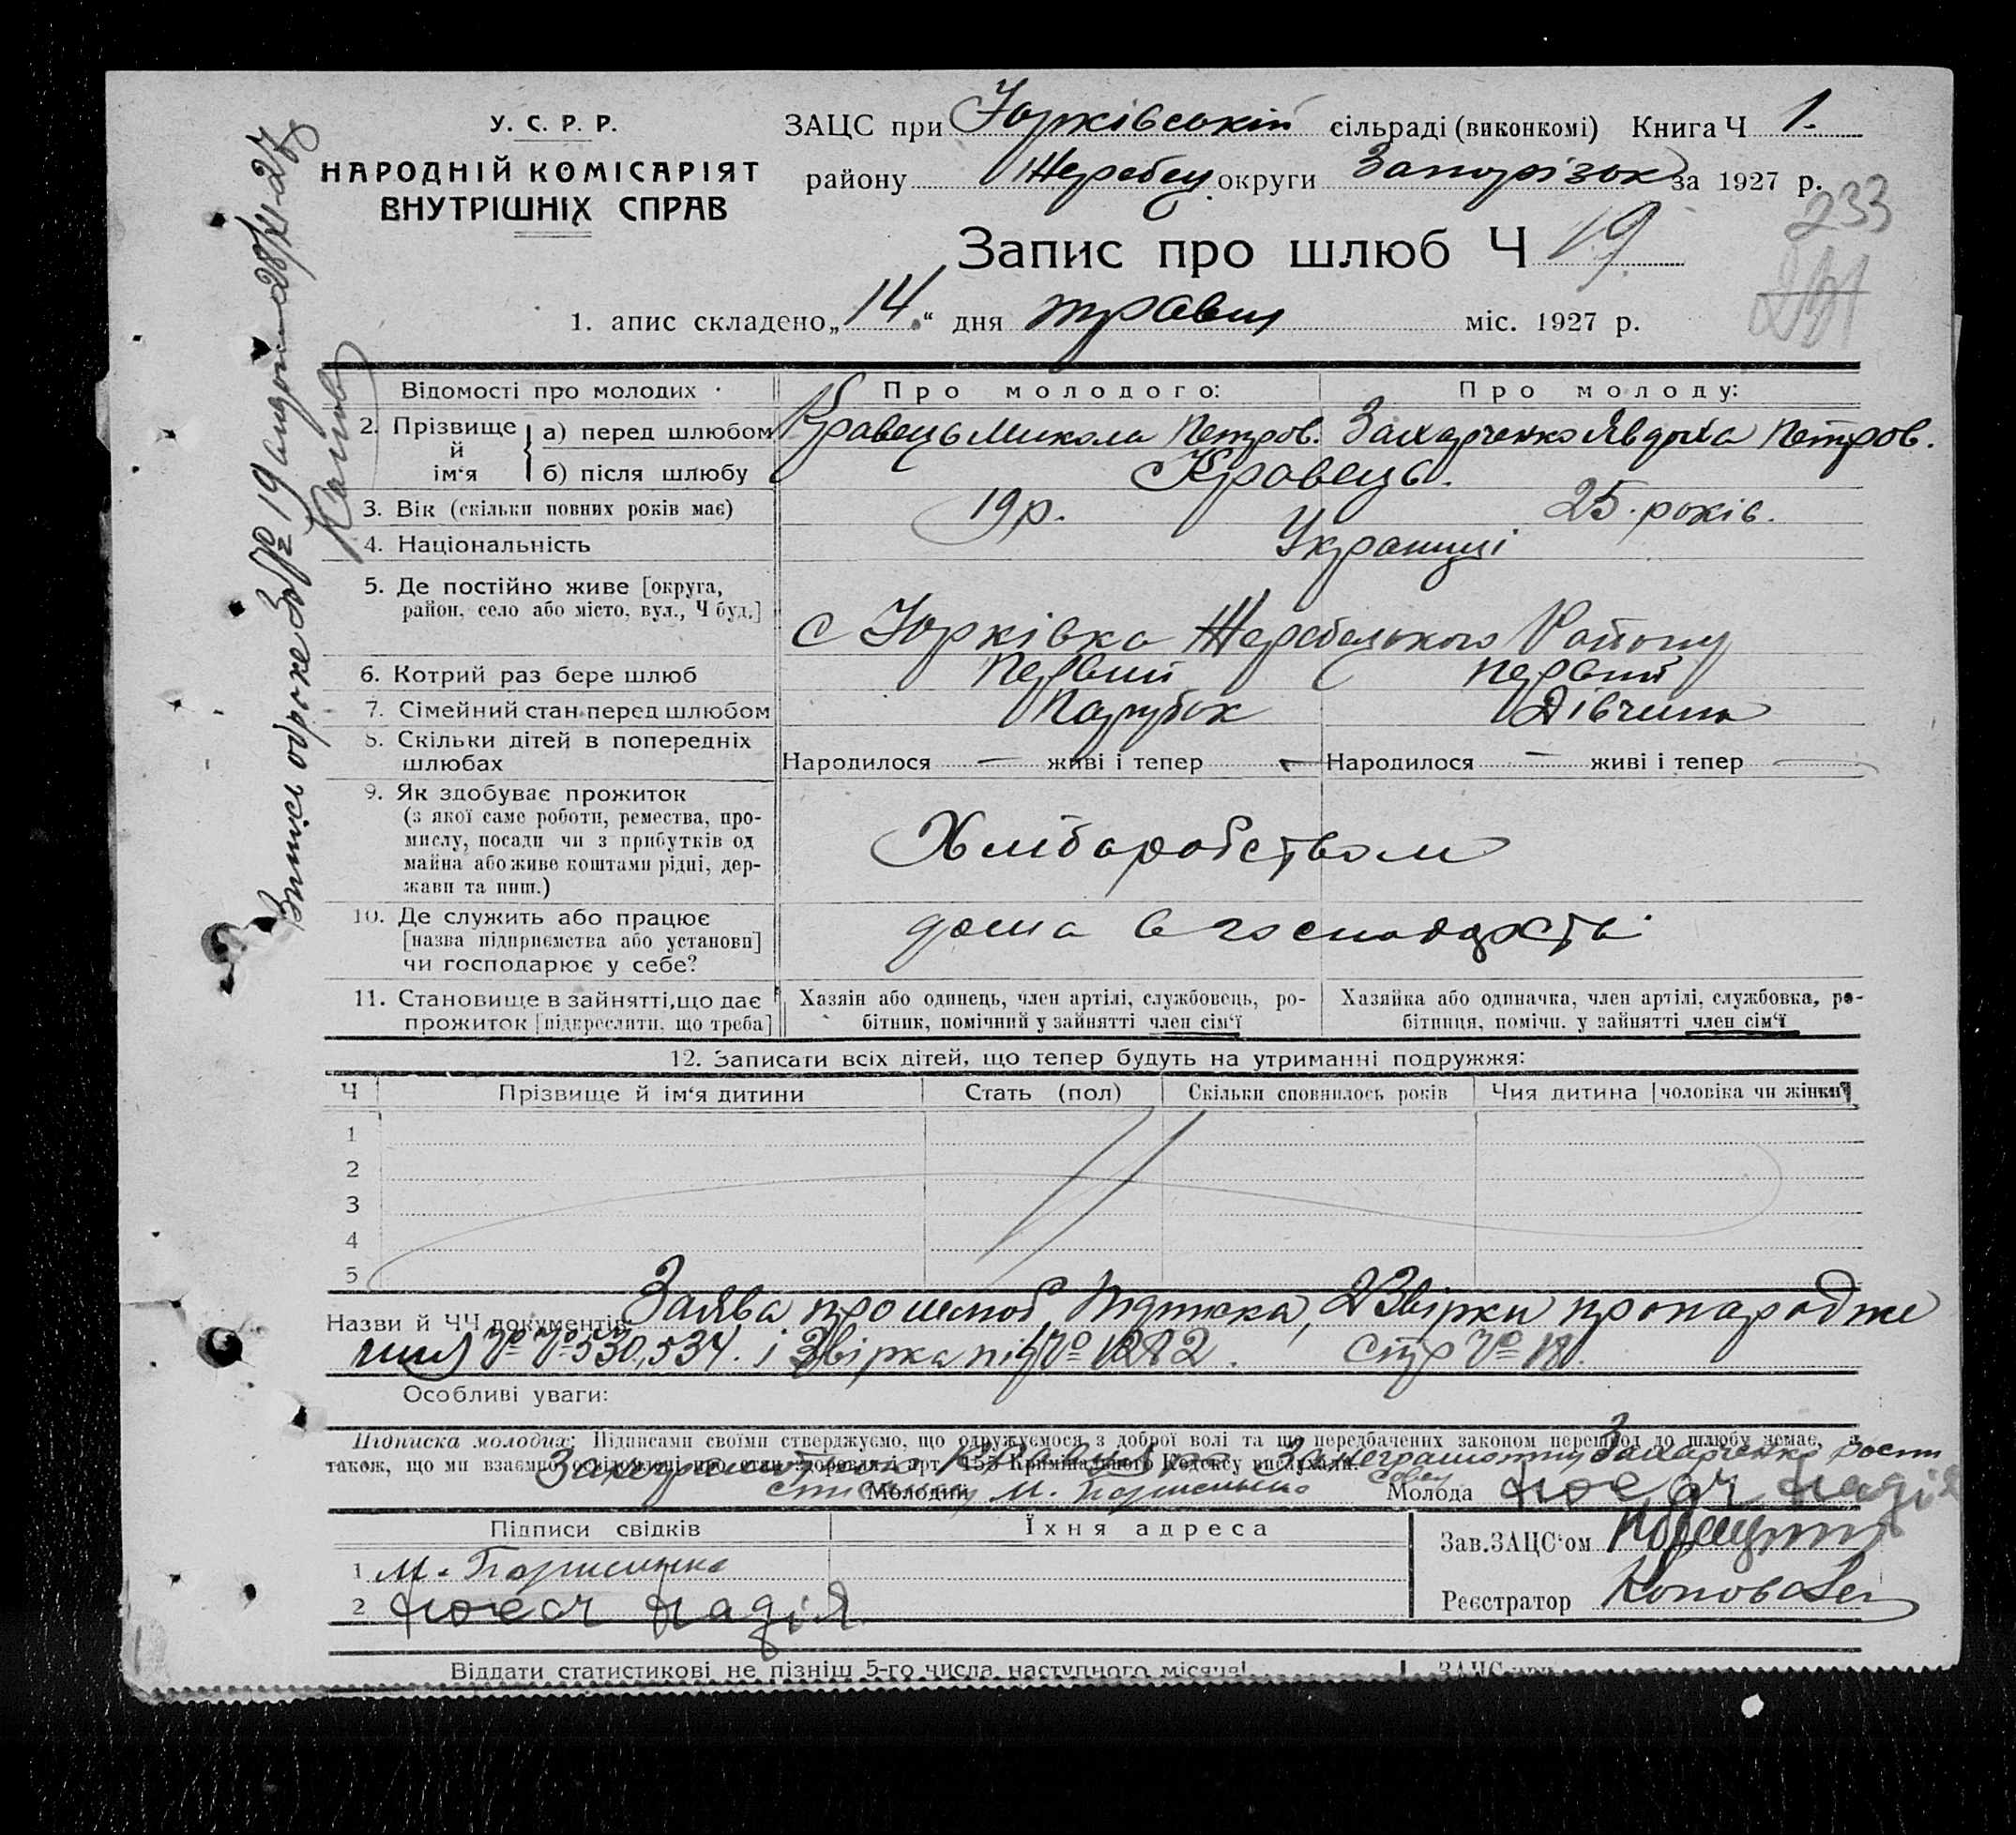 У. С. Р. Р.
НАРОДНІЙ КОМІСАРІЯТ
ВНУТРІШНІХ СПРАВ
ЗАЦС при Юрківській сільраді (виконкомі) Книга Ч 1.
району Жеребец. округи Запорізьк за 1927 р.
233
Запис про шлюб Ч 19.
1. апис складено „14.“ дня травня міс. 1927 р.
Відомості про молодих Про молодого: Про молоду:
2. Прізвище й ім‘я а) перед шлюбом Кравець Микола Петров. Захарченко Явдоха Петров.
б) після шлюбу Кравець.
3. Вік (скільки повних років має) 19 р. 25 років.
4. Національність Українці
5. Де постійно живе [округа,
район, село або місто, вул., Ч буд.]
с Юрківка Жеребецького Району
6. Котрий раз бере шлюб Первий Первий
7. Сімейний стан перед шлюбом Парубок Дівчина
8. Скільки дітей в попередніх
шлюбах Народилося — живі і тепер — Народилося — живі і тепер —
9. Як здобуває прожиток
(з якої саме роботи, ремества, про-
мислу, посади чи з прибутків од
майна або живе коштами рідні, дер-
жави та инш.)
Хліборобством
10. Де служить або працює
[назва підприємства або установи]
чи господарює у себе?
дома в господарстві
11. Становище в зайнятті, що дає
прожиток [підкреслити, що треба]
Хазяін або одинець, член артілі, службовець, ро-
бітник, помічний у зайнятті член сім‘ї
Хазяйка або одиначка, член артілі, службовка, ро-
бітниця, помічн. у зайнятті член сім‘ї
12. Записати всіх дітей, що тепер будуть на утриманні подружжя:
Ч Прізвище й ім‘я дитини Стать (пол) Скільки сповнилось років Чия дитина [чоловіка чи жінки]
1
2
3
4
5
Назви й ЧЧ документів: Заява про шлюб, Підписка, 2 Звірки про народже
ння №№ 530, 534. і Звірка під № 1282. стр № 18.
Особливі уваги:
Підписка молодих: Підписами своїми стверджуємо, що одружуємося з доброї волі та що передбачених законом перешкод до шлюбу немає, а
також, що ми взаємно освідомлені про стан здоровля і арт. 155 Кримінального Кодексу вислухали.
Захарченко
Молодий М. Молода надія
Підписи свідків Їхня адреса
Зав. ЗАЦС‘ом
1 М.
2 надія
Реєстратор Коновал
Віддати статистикові не пізніш 5-го числа наступного місяця!